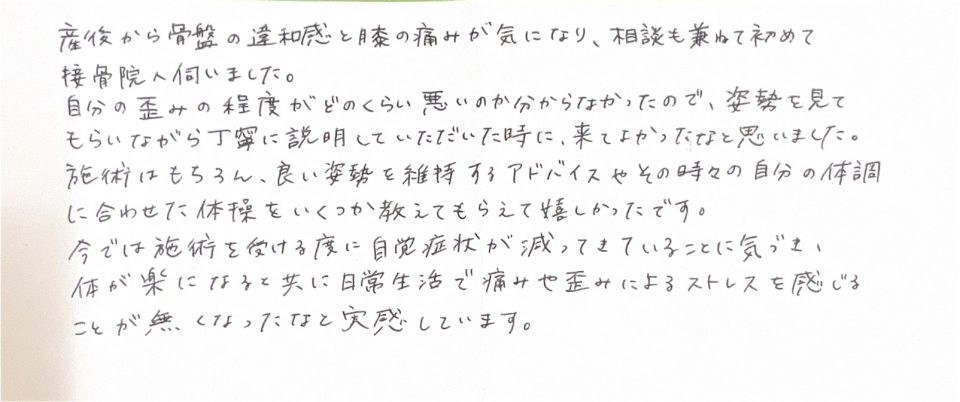 産後から骨盤の違和感と膝の痛みが気になり、相談も兼ねて初めて
接骨院へ伺いました。
自分の歪みの程度がどのくらい悪いのか分からなかったので、姿勢を見て
もらいながら丁寧に説明していただいた時に、来てよかったなと思いました。
施術はもちろん、良い姿勢を維持するアドバイスやその時々の自分の体調
に合わせた体操をいくつか教えてもらえて嬉しかったです。
今では施術を受ける度に自覚症状が減ってきていることに気づき、
体が楽になると共に日常生活で痛みや歪みによるストレスを感じる
ことが無くなったなと実感しています。